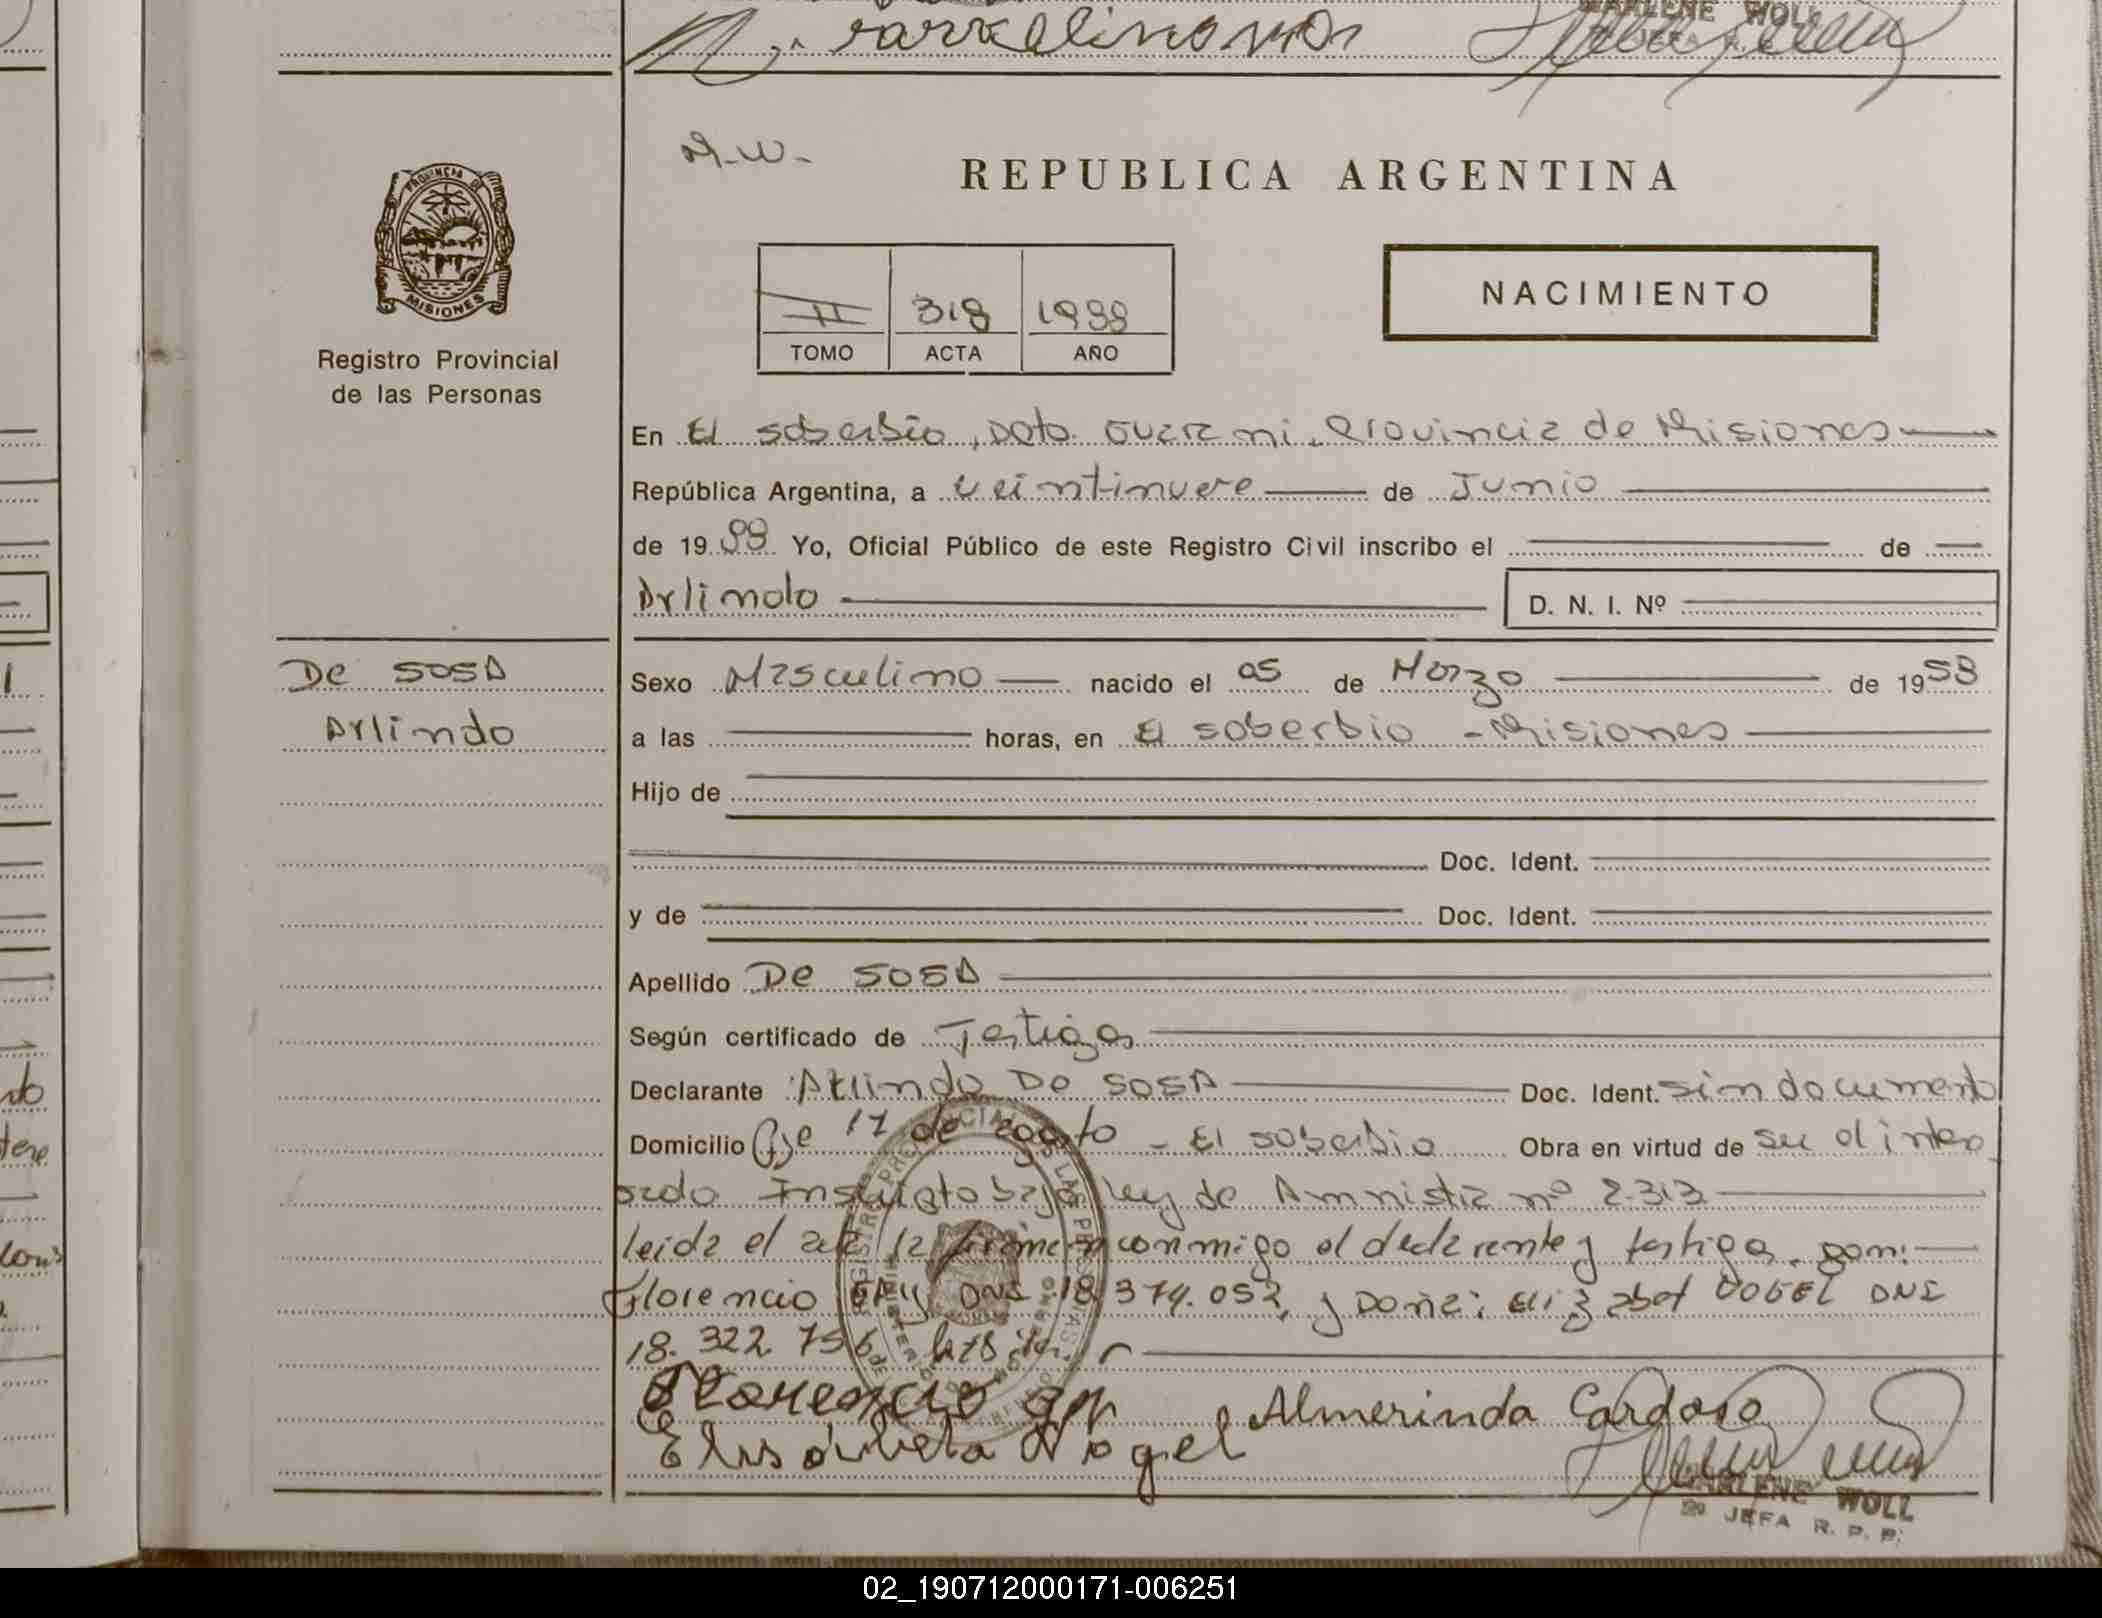 MARLENE WOLL
JEFA R.
M.W.
REPUBLICA ARGENTINA
PROVINCIA DE
MISIONES
Registro Provincial
de las Personas
NACIMIENTO
II 318 1988
TOMO ACTA AÑO
En El soberbio, Dpto. Guarani. Provincia de Misiones
República Argentina, a veintinueve de Junio
de 1988 Yo, Oficial Público de este Registro Civil inscribo el de
Arlindo D. N. I. Nº
De SOSA
Arlindo
Sexo Masculino nacido el 05 de Marzo de 1958
a las horas, en El soberbio - Misiones
Hijo de
Doc. Ident.
y de Doc. Ident.
Apellido De SOSA
Según certificado de Testigos
Declarante Arlindo De SOSA Doc. Ident. sin documento
Domicilio Cje 17 de agosto - El soberbio Obra en virtud de ser el intere
sado Inscripto bajo ley de Amnistia nº 2.313
leida el acta la firman conmigo el declarante y testigos
Florencio DNI 18.374.052, y Doña: Elizabet VOGEL DNI
18.322.756
Florencio Almerinda Cardoso
Elisabeta Vogel
MARLENE WOLL
JEFA R. P. P.
02_190712000171-006251